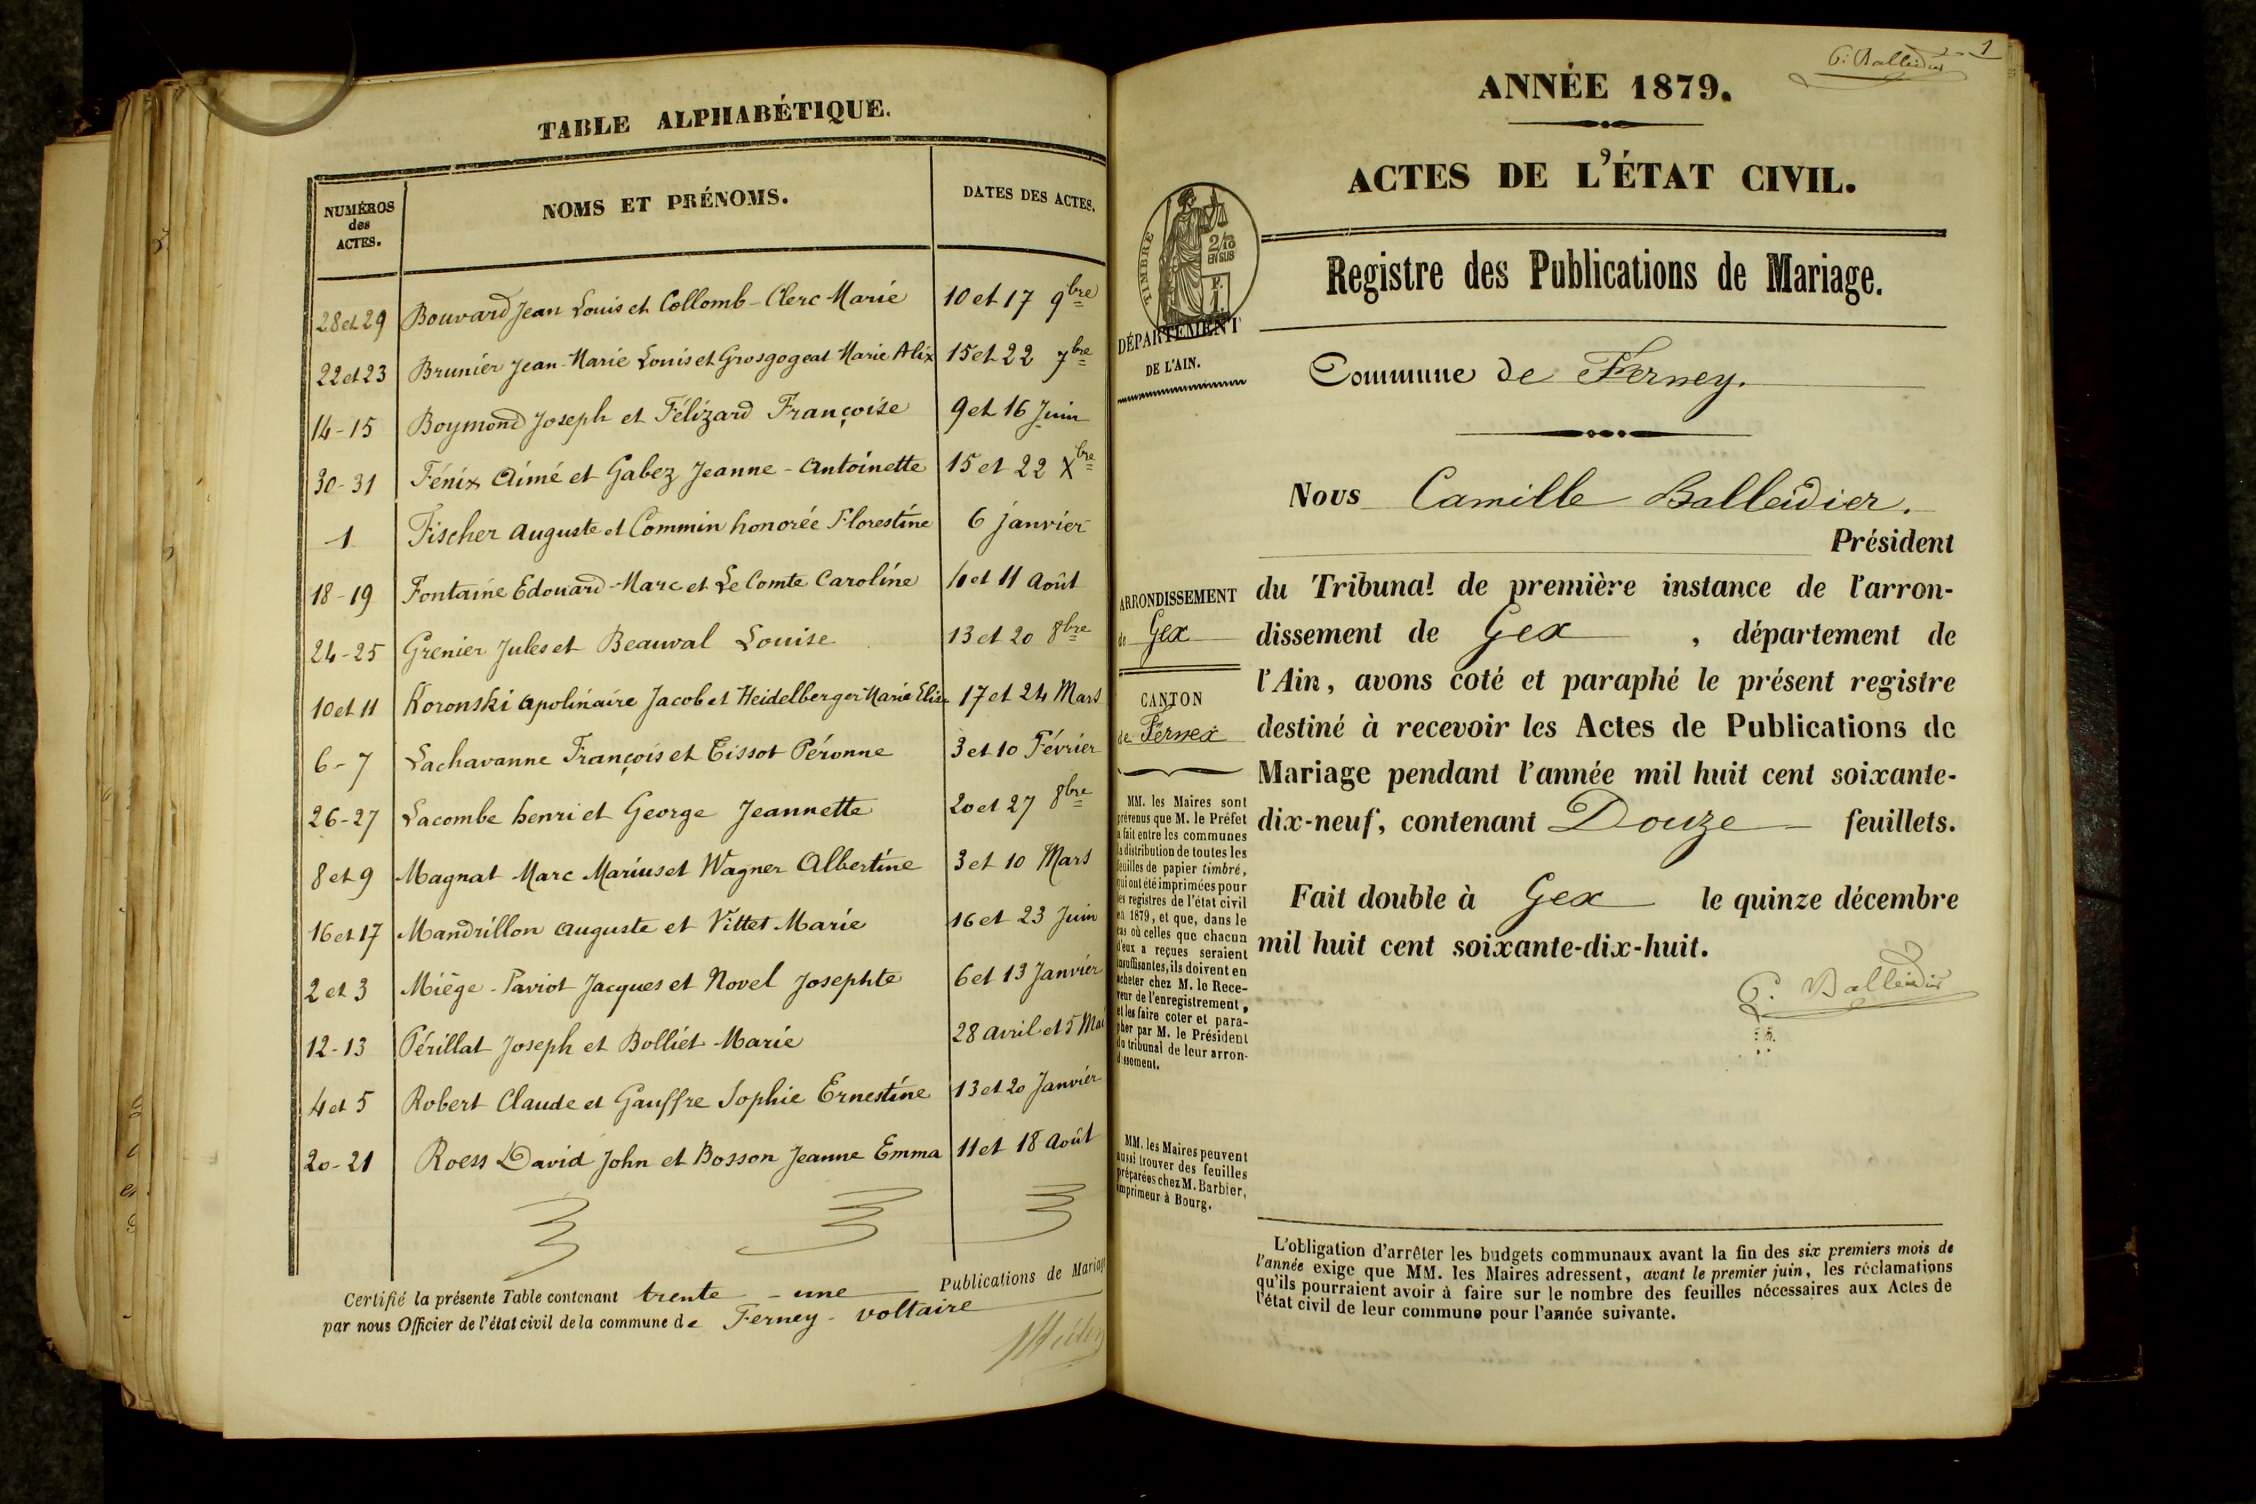 TABLE ALPHABÉTIQUE.
NUMÉROS des ACTES.
NOMS ET PRÉNOMS.
DATES DES ACTES.
28 et 29 Bouvard Jean Louis et Collomb-Clerc Marie 10 et 17 9bre
22 et 23 Brunier Jean-Marie Louis et Grosgogeat Marie Alix 15 et 22 7bre
14-15 Boymond Joseph et Félizard Françoise 9 et 16 Juin
30-31 Fénix Aimé et Gabez Jeanne-Antoinette 15 et 22 Xbre
1 Fischer Auguste et Commin honorée Florestine 6 janvier
18-19 Fontaine Edouard-Marc et Le Comte Caroline 4 et 11 Août
24-25 Grenier Jules et Beauval Louise 13 et 20 8bre
10 et 11 Koronski Apolinaire Jacob et Heidelberger Marie Elise 17 et 24 Mars
6-7 Lachavanne François et Tissot Péronne 3 et 10 Février
26-27 Lacombe henri et George Jeannette 20 et 27 8bre
8 et 9 Magnat Marc Marius et Wagner Albertine 3 et 10 Mars
16 et 17 Mandrillon Auguste et Vittet Marie 16 et 23 Juin
2 et 3 Miège-Paviot Jacques et Novel Josephte 6 et 13 Janvier
12-13 Périllat Joseph et Bolliet Marie 28 avril et 5 Mai
4 et 5 Robert Claude et Gauffre Sophie Ernestine 13 et 20 Janvier
20-21 Roess David John et Bosson Jeanne Emma 11 et 18 Août
Certifié la présente Table contenant trente-une Publications de Mariage
par nous Officier de l'état civil de la commune de Ferney-voltaire
C. Balleidier 1
ANNÉE 1879.
ACTES DE L'ÉTAT CIVIL.
TIMBRE
2/10
EN SUS
Registre des Publications de Mariage.
DÉPARTEMENT
DE L'AIN.
Commune de Ferney.
Nous Camille Balleidier.
Président
du Tribunal de première instance de l'arron-
dissement de Gex, département de
l'Ain, avons coté et paraphé le présent registre
destiné à recevoir les Actes de Publications de
Mariage pendant l'année mil huit cent soixante-
dix-neuf, contenant Douze feuillets.
Fait double à Gex le quinze décembre
mil huit cent soixante-dix-huit.
C. Balleidier
ARRONDISSEMENT
de Gex
CANTON
de Fernex
MM. les Maires sont
prévenus que M. le Préfet
a fait entre les communes
la distribution de toutes les
feuilles de papier timbré,
qui ont été imprimées pour
les registres de l'état civil
en 1879, et que, dans le
cas où celles que chacun
d'eux a reçues seraient
insuffisantes, ils doivent en
acheter chez M. le Rece-
veur de l'enregistrement,
et les faire coter et para-
pher par M. le Président
du tribunal de leur arron-
dissement.
MM. les Maires peuvent
aussi trouver des feuilles
préparées chez M. Barbier,
imprimeur à Bourg.
L'obligation d'arrêter les budgets communaux avant la fin des six premiers mois de
l'année exige que MM. les Maires adressent, avant le premier juin, les réclamations
qu'ils pourraient avoir à faire sur le nombre des feuilles nécessaires aux Actes de
l'état civil de leur commune pour l'année suivante.